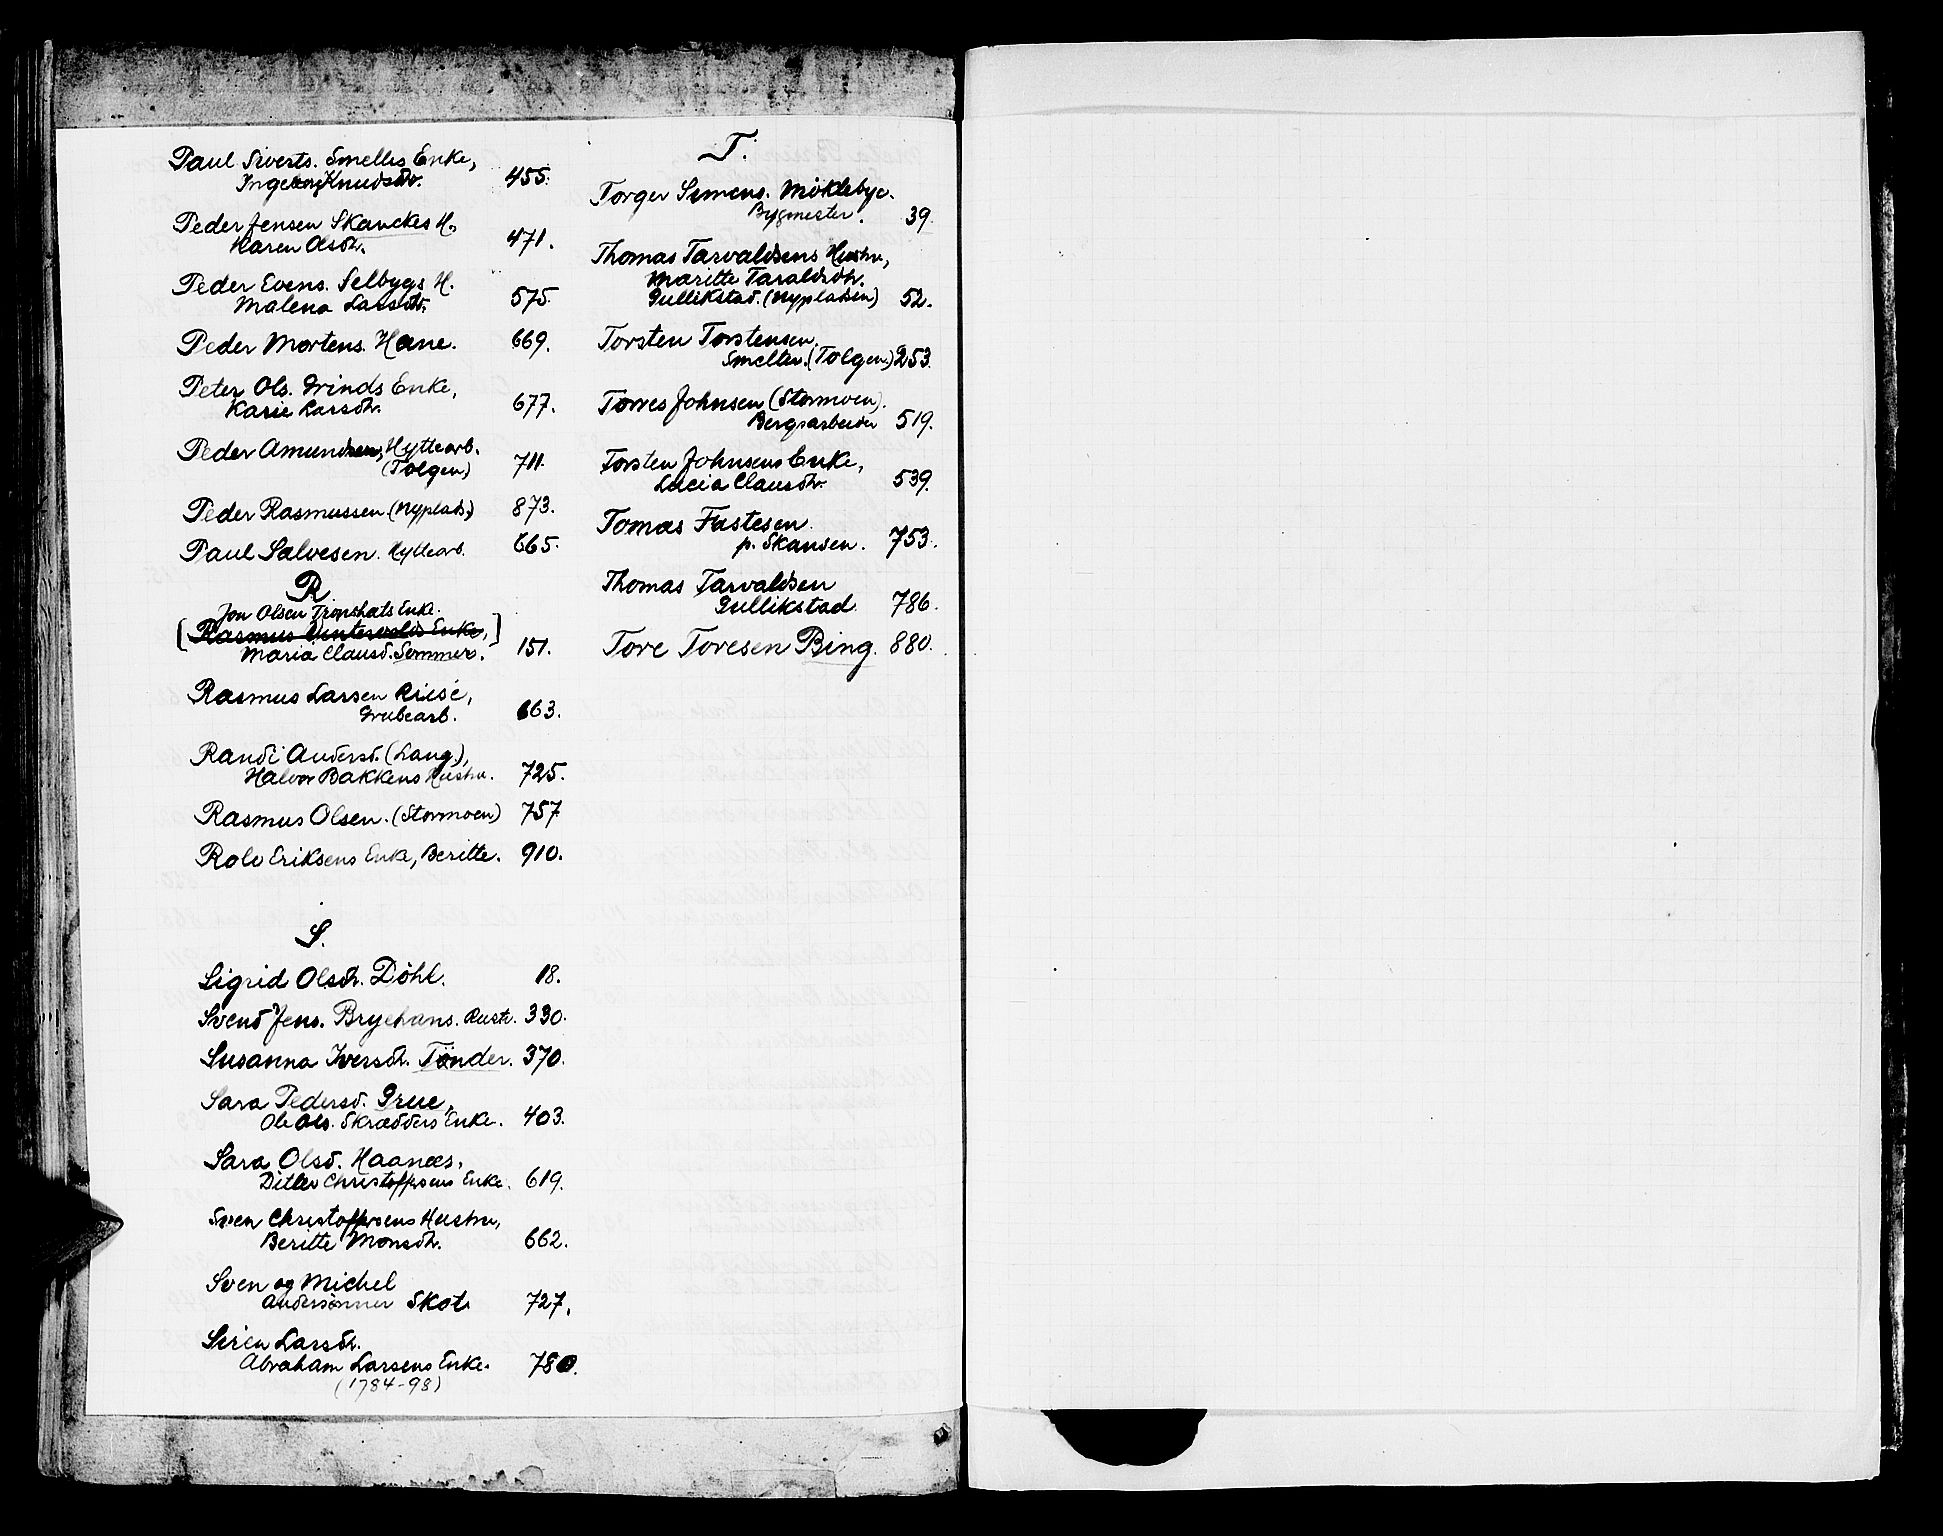 Paul Siverts. Smelters Enke,
Ingeborg Knudsdtr. 455.
Peder Jensen Skanckes H.
Karen Olsdtr. 471.
Peder Evens. Selbygs H.
Malena Larsdtr. 575.
Peder Mortens. Hane. 669.
Peter Ols. Grinds Enke,
Karie Larsdtr. 677.
Peder Amundsen, Hyttearb.
(Tolgen) 711.
Peder Rasmussen (Nyplads.) 873.
Paul Salvesen. Hyttearb. 665.
R
Jon Olsen Tronshats Enke.
[Rasmus Vintervolds Enke,]
Maria Clausd. Sommer. 151.
Rasmus Larsen Riise,
Grubearb. 663.
Randi Andersd. (Lang),
Halvor Bakkens Hustru. 725.
Rasmus Olsen. (Stormoen) 757
Rolv Eriksens Enke, Beritte. 910.
S.
Sigrid Olsdtr. Döhl. 18.
Svend Jens. Bryehans. Hustr. 330.
Susanna Iversdtr. Tönder. 370.
Sara Pedersd. Grue,
Ole Ols. Skrædders Enke. 403.
Sara Olsd. Haanæs,
Ditlev Christoffersens Enke. 619.
Sven Christoffersens Hustru,
Beritte Monsdtr. 662.
Sven og Michel
Andersönner Skot. 727.
Siren Larsdtr.
Abraham Larsens Enke. 780.
(1784-98)
T.
Torger Simens. Möklebye.
Bygmester. 39.
Thomas Tarvaldsens Hustru,
Maritte Taraldsdtr.
Gullikstad. (Nypladsen) 52.
Torsten Torstensen.
Smelter. (Tolgen.) 253.
Torres Johnsen (Stormoen).
Bergsarbeider 519.
Torsten Johnsens Enke,
Lucia Clausdtr. 539.
Tomas Fastesen
p. Skansen. 753.
Thomas Tarvaldsen
Gullikstad. 786.
Tore Toresen Bing. 880.